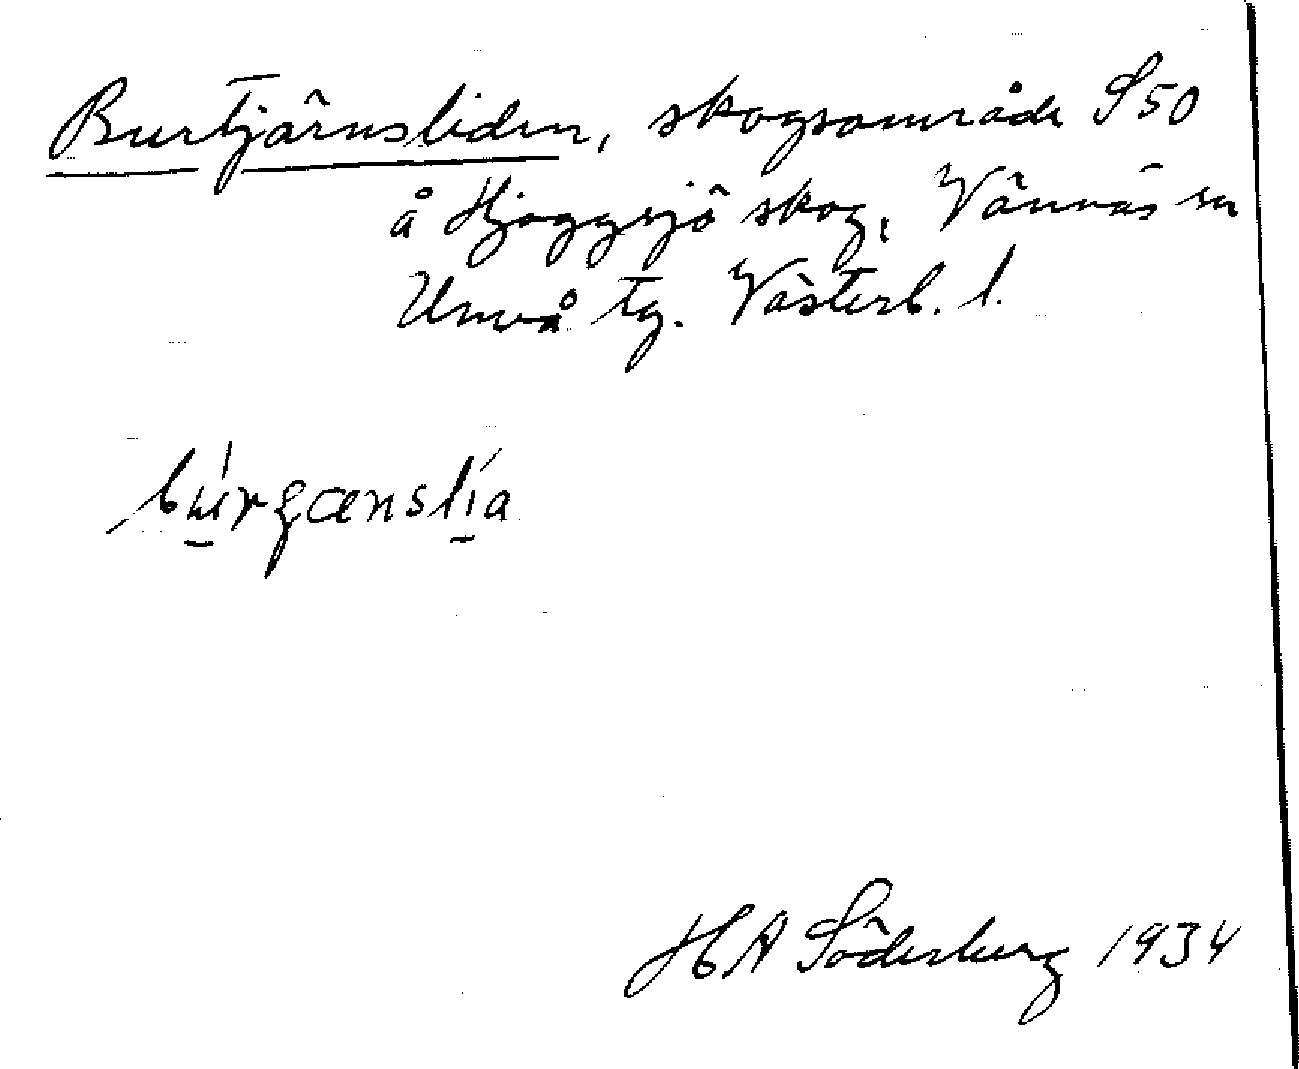 Burtjärnsliden, skogsområde S 50
å Hjoggsjö skog, Vännäs sn
Umeå tg. Västerb. l.
H A Söderberg 1934